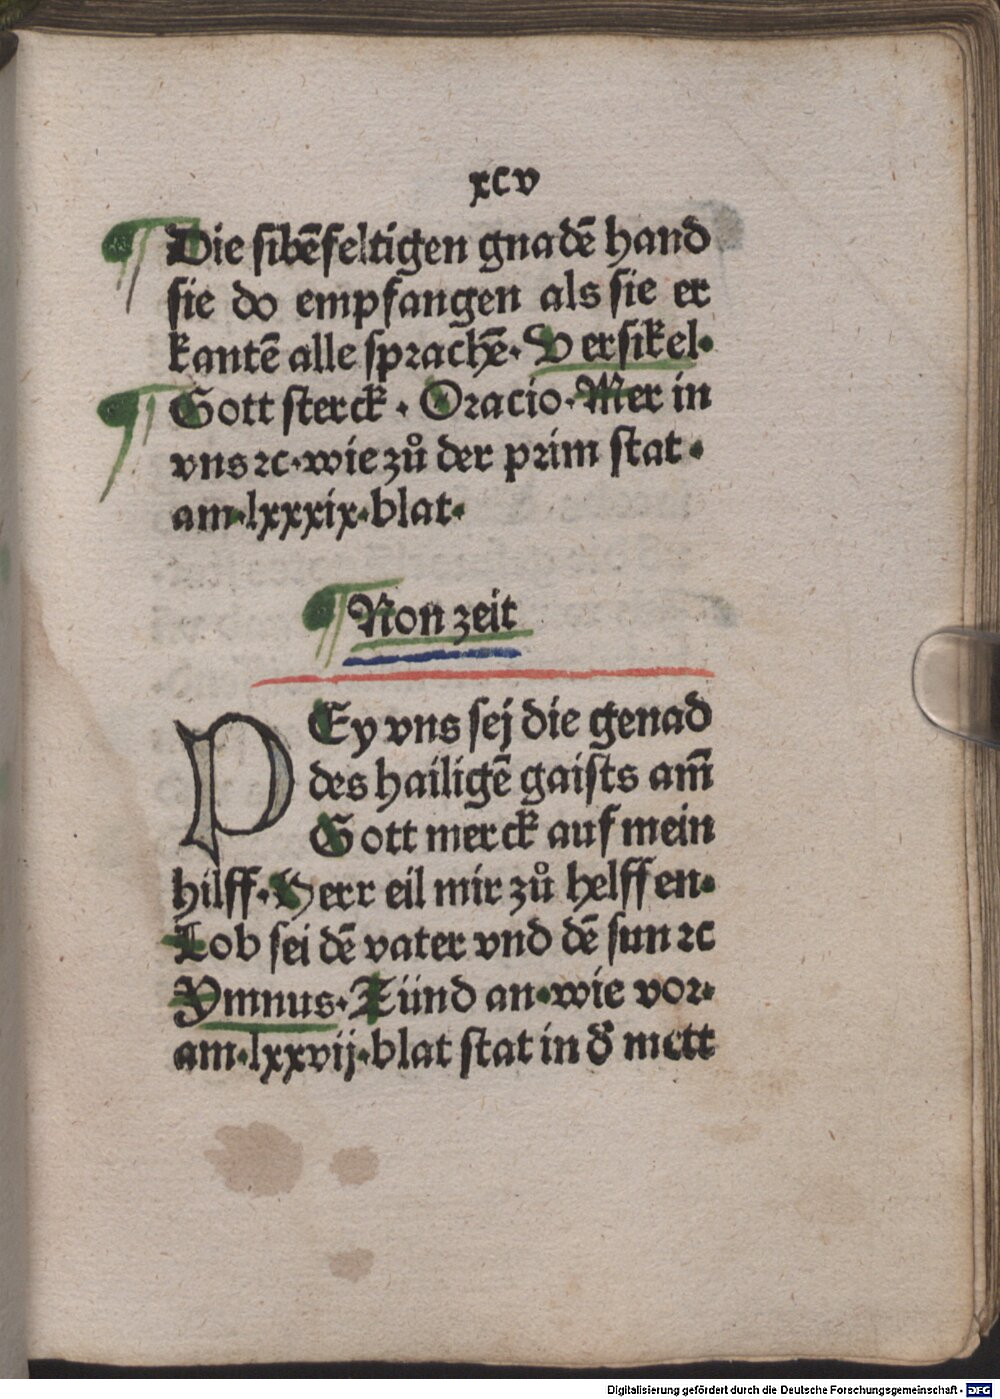 xcv
Die sibẽfeltigen gnadẽ hand
sie do empfangen als sie er
kantẽ alle sprachẽ. Versikel.
Gott sterck. Oracio. Mer in
vns ⁊c. wie zů der prim stat.
am. lxxxix. blat.
Non zeit
PEy vns sej die genad
des hailigẽ gaists am̃
Gott merck auf mein
hilff. Herr eil mir zů helffen.
Lob sei dẽ vater vnd dẽ sun ⁊c
Ymnus. Zünd an. wie vor.
am. lxxvij. blat stat in d̃ mett
Digitalisierung gefördert durch die Deutsche Forschungsgemeinschaft - DFG